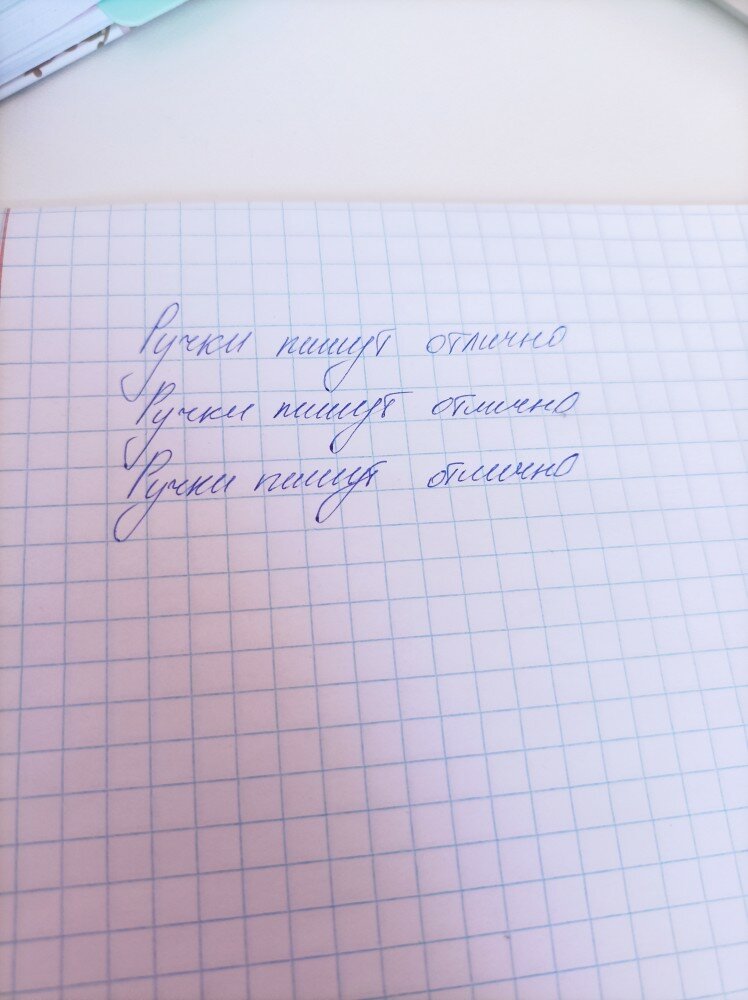 Ручки пишут отлично
Ручки пишут отлично
Ручки пишут отлично